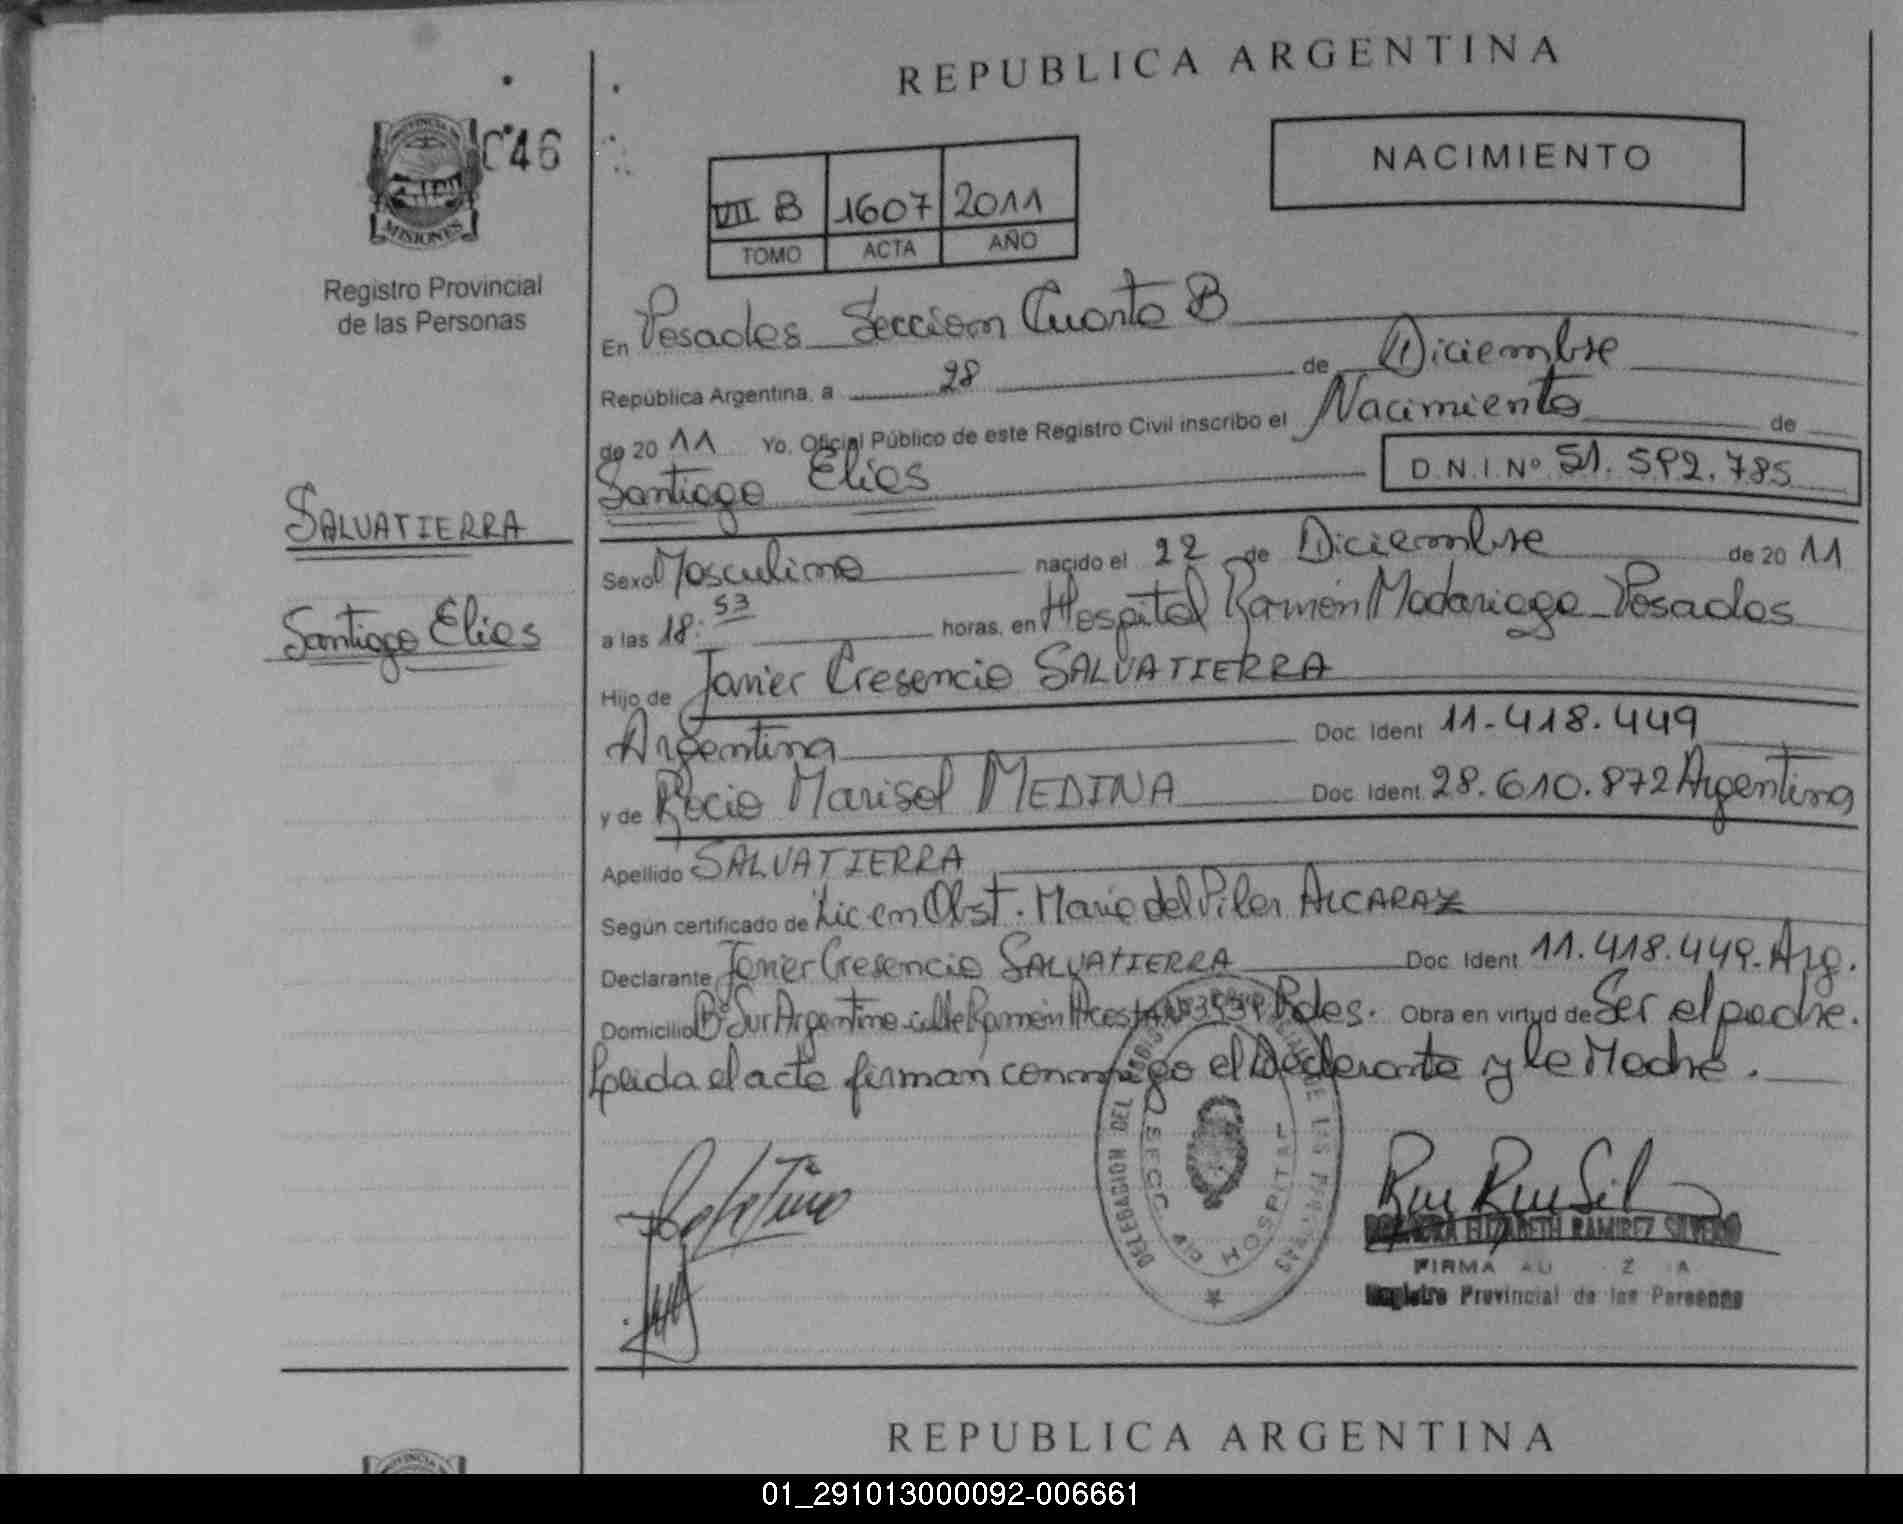 REPUBLICA ARGENTINA
PROVINCIA DE
MISIONES
046
Registro Provincial
de las Personas
NACIMIENTO
VII B 1607 2011
TOMO ACTA AÑO
En Posadas Seccion Cuarta B
República Argentina, a 28 de Diciembre
de 20 11 Yo, Oficial Público de este Registro Civil inscribo el Nacimiento de
Santiago Elias D.N.I.Nº 51.592.785
SALVATIERRA
Santiago Elias
Sexo Masculino nacido el 22 de Diciembre de 20 11
a las 18:53 horas, en Hospital Ramón Madariaga-Posadas
Hijo de Javier Cresencio SALVATIERRA
Argentina Doc. Ident 11-418.449
y de Rocio Marisol MEDINA Doc. Ident. 28.610.872 Argentina
Apellido SALVATIERRA
Según certificado de Lic en Obst. Maria del Pilar ALCARAZ
Declarante Javier Cresencio SALVATIERRA Doc. Ident 11.418.449-Arg.
Domicilio Bº Sur Argentino calle Ramón Acosta Nº Pdas. Obra en virtud de Ser el padre.
Leida el acta firman conmigo el Declarante y la Madre.
DELEGACION DEL DE LAS PERSONAS
SECC. 4ta HOSPITAL
ELIZABETH RAMIREZ SILVERO
FIRMA
Registro Provincial de las Personas
REPUBLICA ARGENTINA
01_291013000092-006661